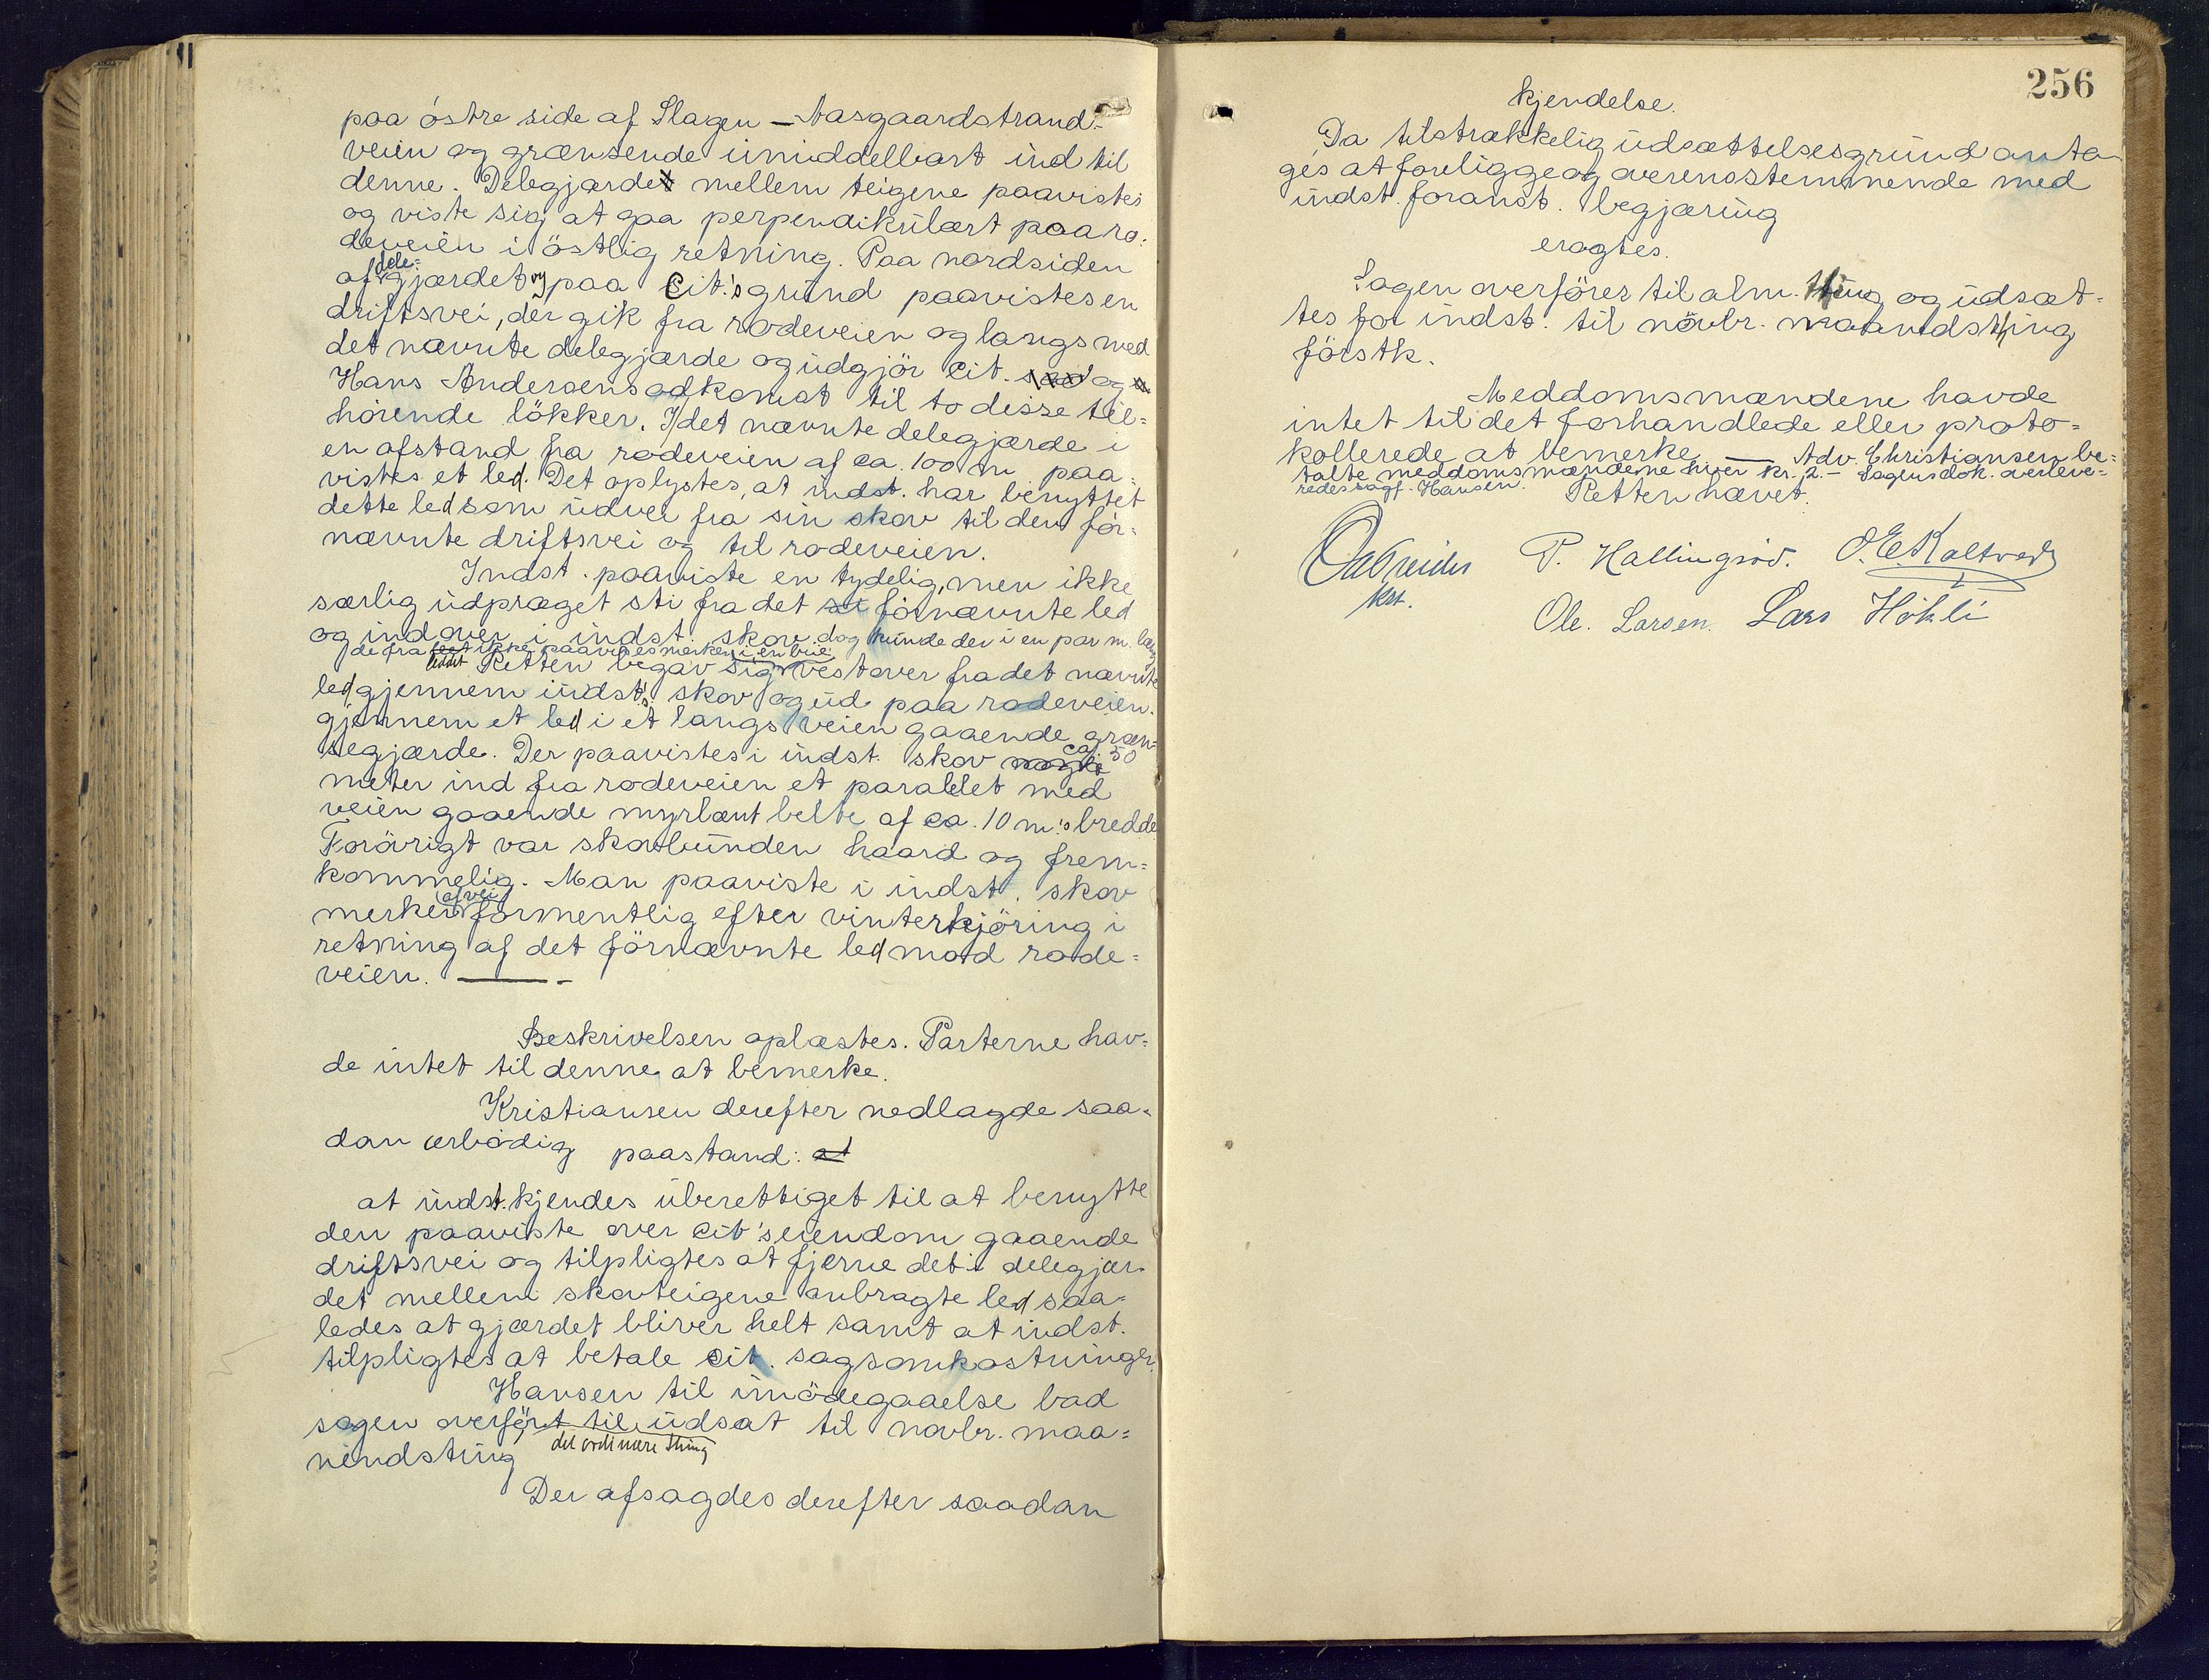 paa östre side af Slagen - Aasgaardstrand-
veien og grænsende umiddelbart ind til
denne. Delegjærdet mellem teigene paavistes
og viste sig at gaa perpendikulært paa ro-
deveien i östlig retning. Paa nordsiden
af dele-
gjærdet og paa Cit.'s grund paavistes en
driftsvei, der gik fra rodeveien og langs med
det nævnte delegjærde og udgjör Cit. og
Hans Andersens adkomst til to disse til-
hörende lökker. I det nævnte delegjærde i
en afstand fra rodeveien af ca. 100 m paa-
vistes et led. Det oplystes, at indst. har benyttet
dette led som udvei fra sin skov til den för-
nævnte driftsvei og til rodeveien.
Indst. paaviste en tydelig, men ikke
særlig udpræget sti fra det förnævnte led
og indover i indst. skov. dog kunde der i en par m. læng
de fra leddet ikke paavises merker i en
Retten begav sig vestover fra det nævnte
led gjennem indst's skov og ud paa rodeveien.
gjennem et led i et langs veien gaaende græn-
segjærde. Der paavistes i indst. skov ca. 50
meter ind fra rodeveien et parallelt med
veien gaaende myrlænt belte af ca. 10 m's bredde
Forövrigt var skovbunden haard og frem-
kommelig. Man paaviste i indst. skov
merker af vei formentlig efter vinterkjöring i
retning af det förnævnte led mod rode-
veien. -
Beskrivelsen oplæstes. Parterne hav-
de intet til denne at bemerke.
Kristiansen derefter nedlagde saa-
dan ærbödig paastand: at
at indst. kjendes uberettiget til at benytte
den paaviste over cit's eiendom gaaende
driftsvei og tilpligtes at fjerne det i delegjær-
det mellem skovteigene anbragte led saa-
ledes at gjærdet bliver helt samt at indst.
tilpligtes at betale cit. sagsomkostninger.
Hansen til imödegaaelse bad
sagen overfört til udsat til novbr. maa-
nendsting det ordinære thing
Der afsagdes derefter saadan
256
kjendelse.
Da tilstrækkelig udsættelsesgrund anta-
ges at foreligge og overensstemmende med
indst. foranst. begjæring
eragtes.
Sagen overföres til alm. thing og udsæt-
tes for indst. til növbr. maanedsthing
förstk.
Meddomsmændene havde
intet til det forhandlede eller proto-
kollerede at bemerke. - Adv. Christiansen be-
talte meddomsmændene hver kr. 2.- Sagens dok. overleve-
redes sagf. Hansen. Retten hævet.
P. Hallingrød. O. E. Kaltvedt
kst.
Ole. Larsen. Lars Hökli